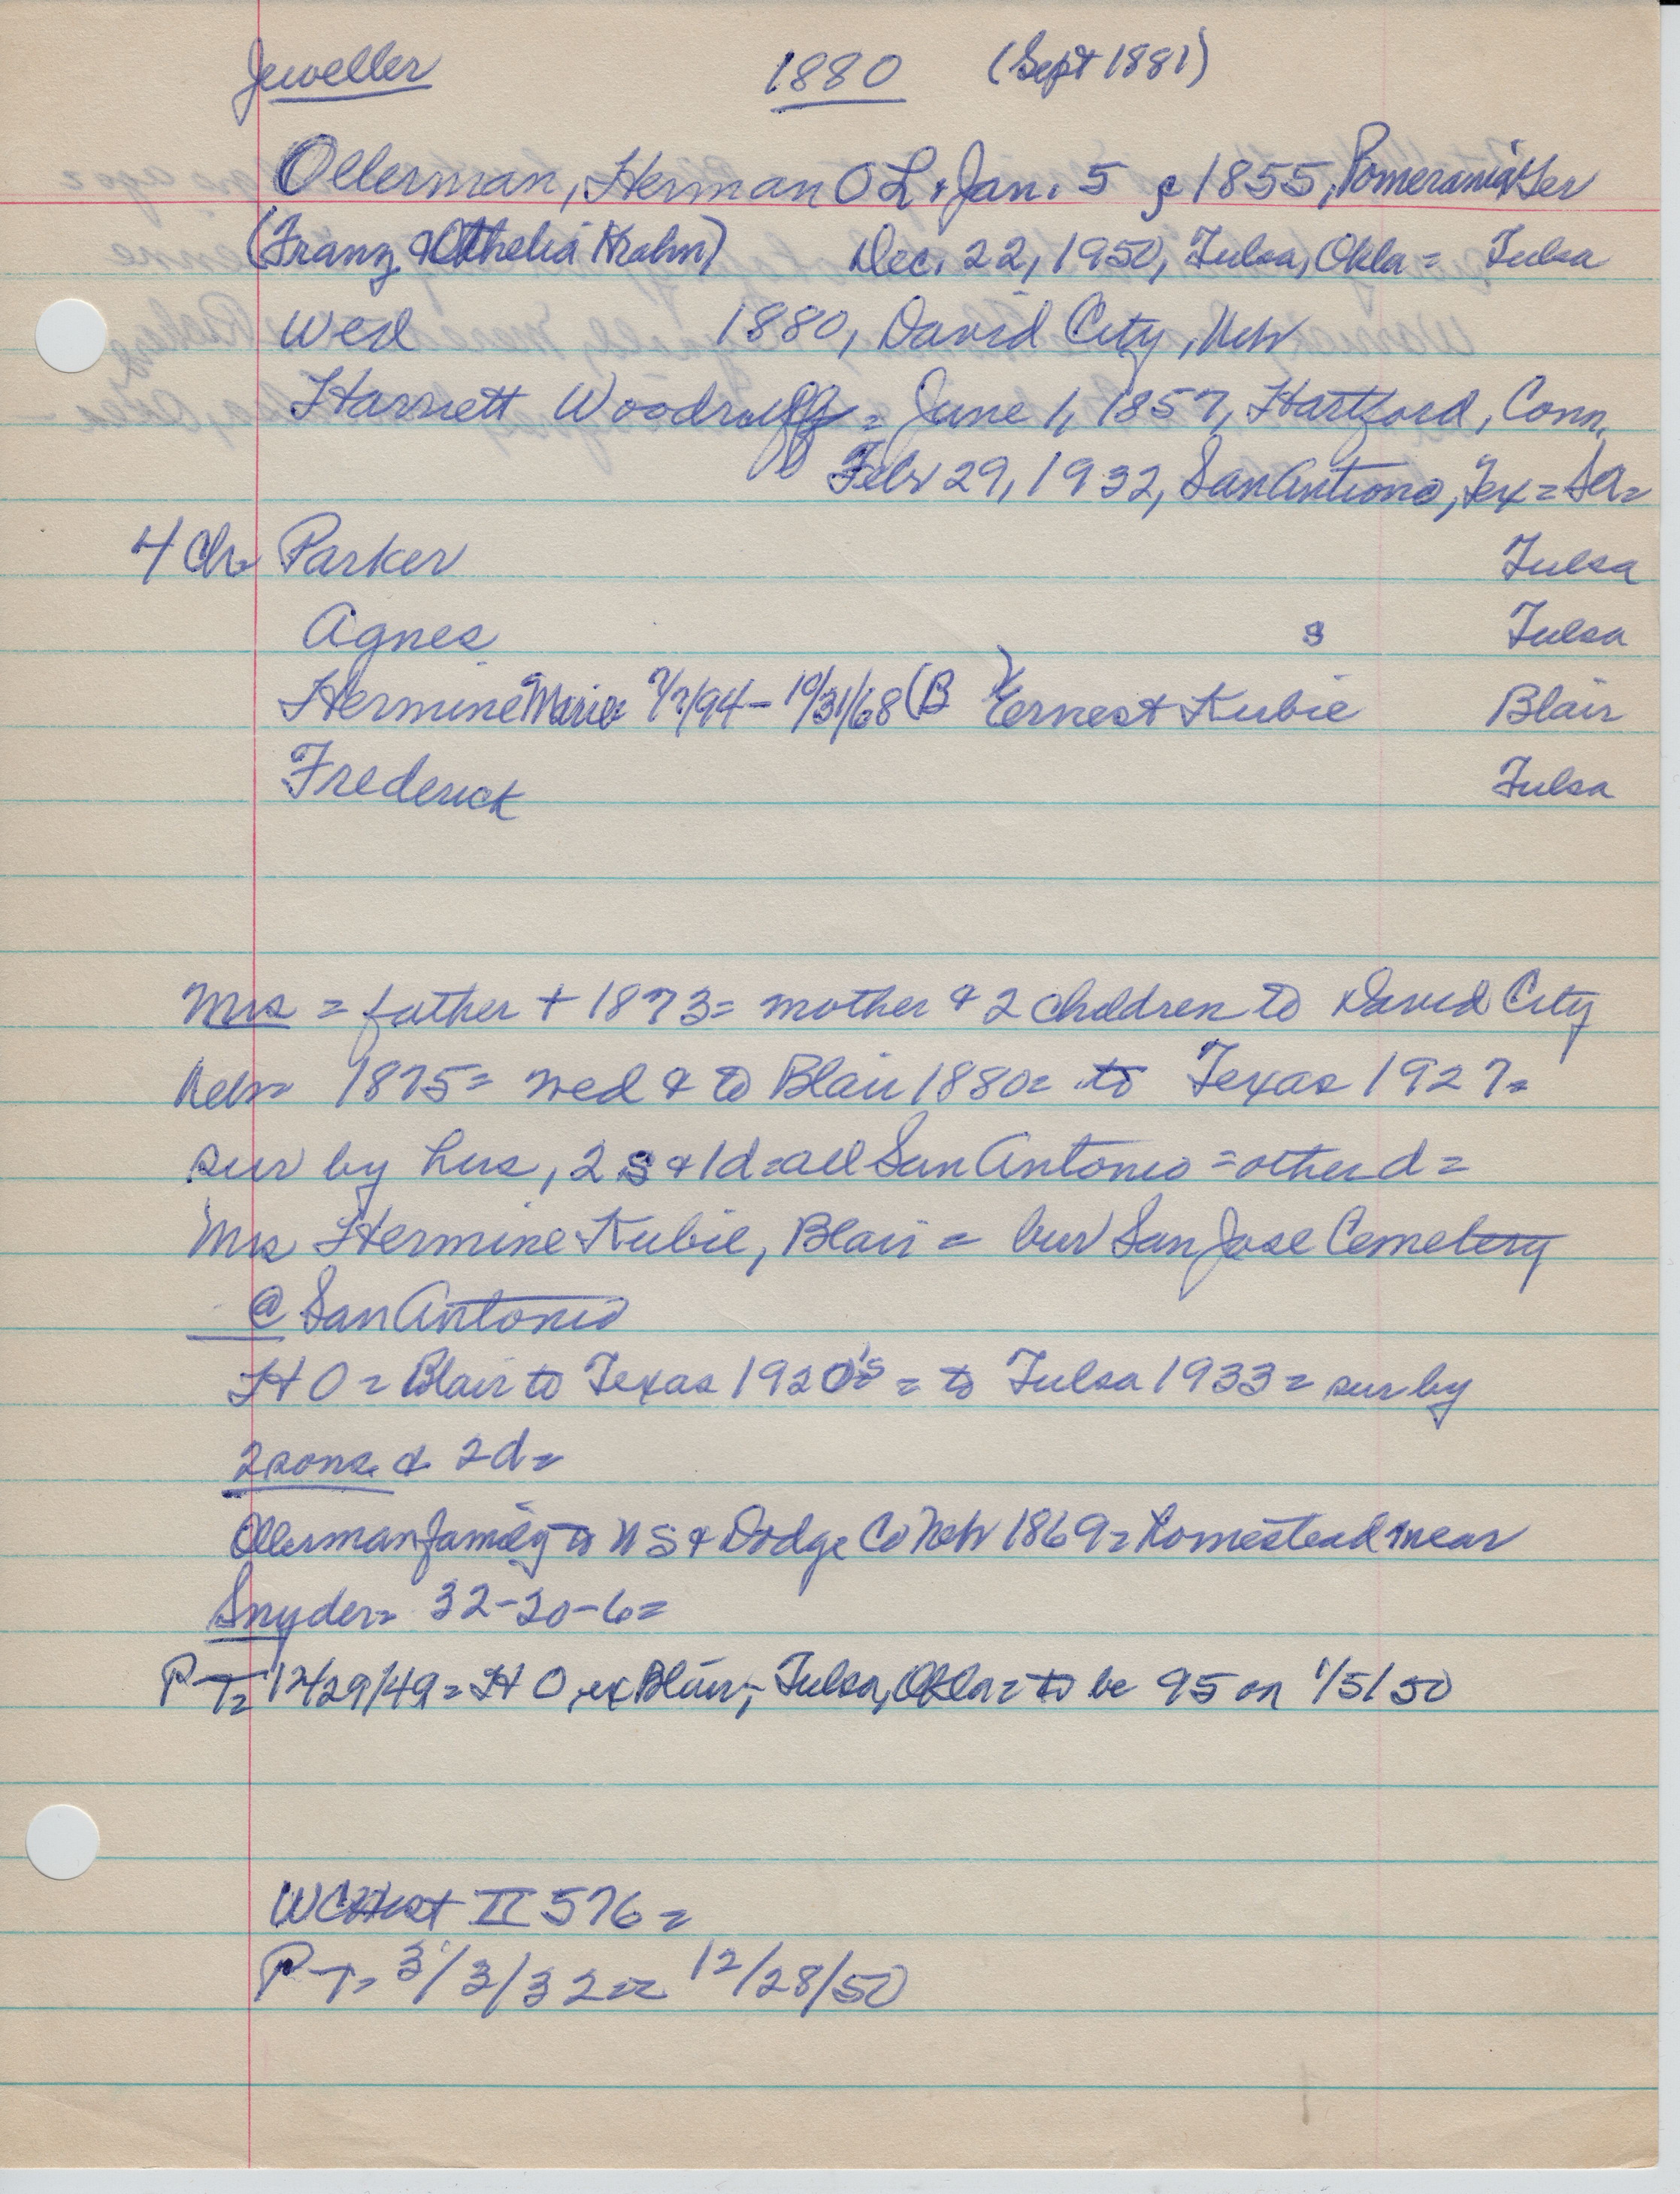 Jeweller 1880 (Sept 1881)
Ollerman, Herman O L = Jan. 5, 1855, Pomerania Ger
(Franz & Othelia Krahn) Dec. 22, 1950, Tulsa, Okla = Tulsa
Wed 1880, David City, Neb
Harriett Woodruff = June 1, 1857, Hartford, Conn.
Feb 29, 1932, San Antiono, Tex = SA =
4 Ch = Parker Tulsa
Agnes s Tulsa
Hermine Marie = 7/7/94 - 10/31/68 (B ) Ernest Kubie Blair
Frederick Tulsa
Mrs = father + 1873 = mother & 2 children to David City
Neb = 1875 = wed & to Blair 1880 = to Texas 1927 =
sur by hus, 2 s & 1 d = all San Antonio = other d =
Mrs Hermine Kubie, Blair = bur San Jose Cemetery
@ San Antonio
H O = Blair to Texas 1920's = to Tulsa 1933 = sur by
2 sons & 2 d =
Ollerman family to U S & Dodge Co Neb 1869 = homestead near
Snyder = 32-20-6 =
P-T = 12/29/49 = H O, ex Blair, - Tulsa, Okla = to be 95 on 1/5/50
WCHist II 576 =
P-T = 3/3/32 = 12/28/50